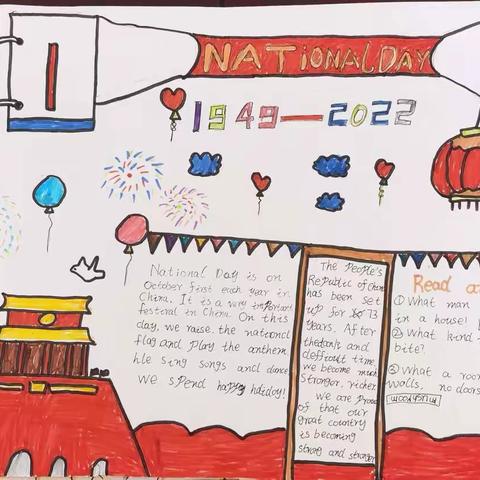 1
NATIONALDAY
1949—2022
National Day is on
October first each year in
China. It is a very important
festival in China. On this
day, we raise the national
flag and play the anthem
hle sing songs and dance
We spend happy holiday!
The People's
Republic of China
has been set
up for 73
years. After
the dark and
defficult time,
we become much
stronger, richer.
we are proud
of that our
great country
is becoming
strong and stronger
Read a
① What man
in a house!
② What kind
bite?
③ What a room
walls, no doors
mushroom